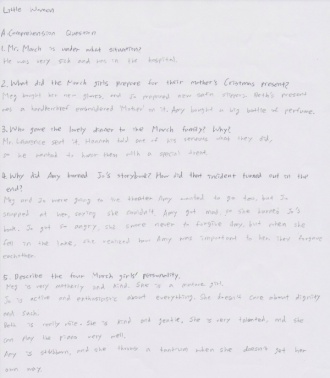 Little Women
A. Comprehension Question
1. Mr. March is under what situation?
He was very sick and was in the hospital.
2. What did the March girls prepare for their mother's Christmas presents?
Meg bought her new gloves, and Jo prepared new satin slippers. Beth's present
was a handkerchief embroidered 'Mother' on it. Amy bought a big bottle of perfume.
3. Who gave the lovely dinner to the March family? Why?
Mr. Laurence sent it. Hannah told one of his servants what they did,
so he wanted to honor them with a special
4. Why did Amy burned Jo's storybook? How did that incident turned out in the
end?
Meg and Jo were going to the theater. Amy wanted to go too, but Jo
at her, saying she couldn't. Amy got mad so she burned Jo's
book. Jo got so angry, and swore never to forgive Amy, but when she
fell in the lake, she realized how Amy was important to her. They forgave
each other.
5. Describe the four March girls' personality.
Meg is very motherly and kind. She is a mature girl.
Jo is active and enthusiastic about everything. She doesn't care about
and such.
Beth is really shy. She is kind and gentle. She is very talented, and she
can play the piano very well.
Amy is stubborn, and she throws a tantrum when she doesn't get her
own way.